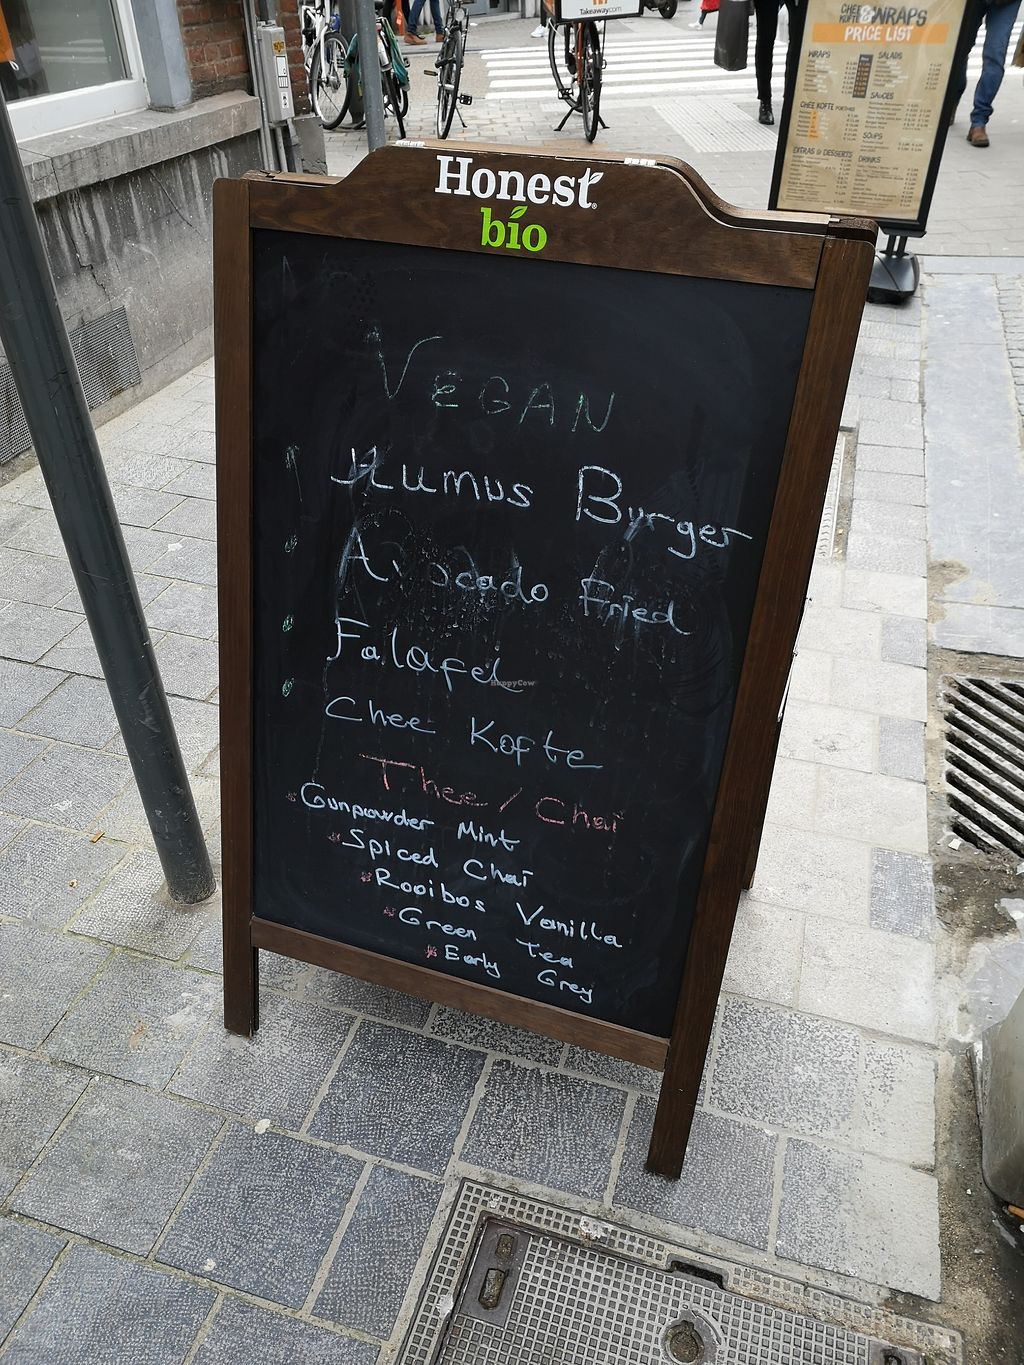 Takeaway.com
CHEE
KOFTE & WRAPS
PRICE LIST
WRAPS
SALADS
SAUCES
CHEE KOFTE PORTIONS
SOUPS
EXTRAS & DESSERTS
DRINKS
Honest
bio
VEGAN
Humus Burger
Avocado Fried
Falafel
Chee Kofte
Thee / Chai
Gunpowder Mint
Spiced Chai
Rooibos Vanilla
Green Tea
Early Grey
HappyCow